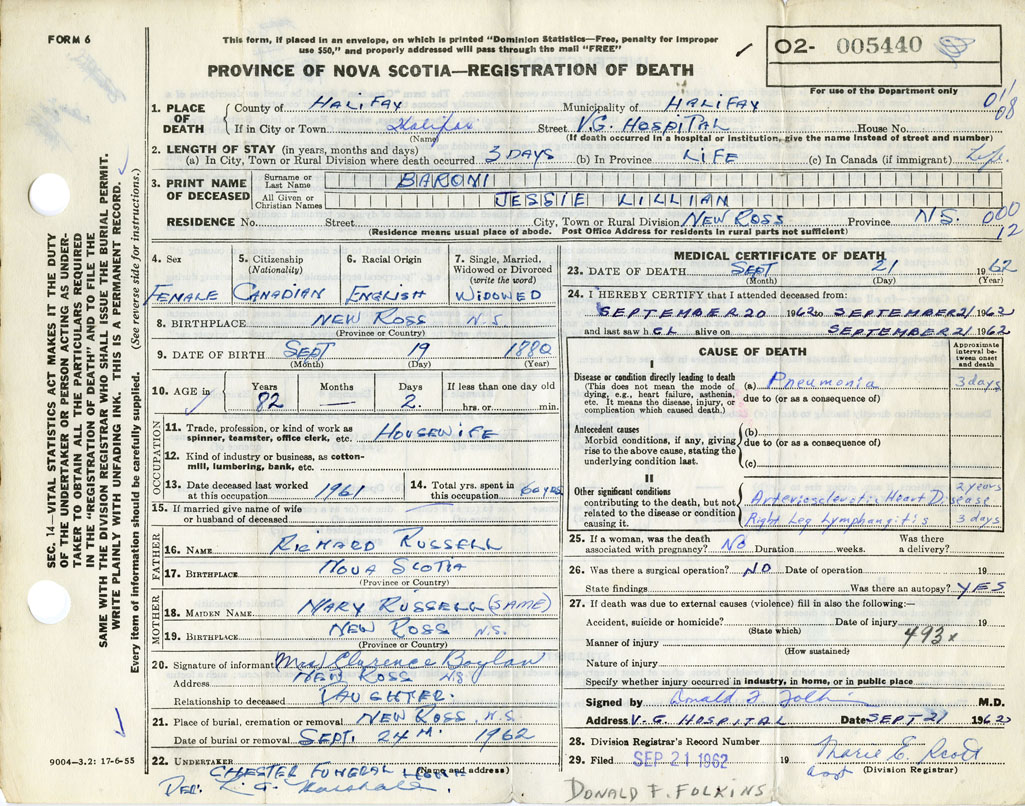 FORM 6
This form, if placed in an envelope, on which is printed "Dominion Statistics—Free, penalty for improper
use $50," and properly addressed will pass through the mail "FREE"
PROVINCE OF NOVA SCOTIA—REGISTRATION OF DEATH
02- 005440
For use of the Department only
1. PLACE OF DEATH County of HALIFAX Municipality of HALIFAX 011
If in City or Town Halifax Street V.G. HOSPITAL House No. 08
(Name) (If death occurred in a hospital or institution, give the name instead of street and number)
2. LENGTH OF STAY (in years, months and days)
(a) In City, Town or Rural Division where death occurred 3 DAYS (b) In Province LIFE (c) In Canada (if immigrant) Life
3. PRINT NAME OF DECEASED Surname or Last Name BARONI
All Given or Christian Names JESSIE LILLIAN
RESIDENCE No. Street City, Town or Rural Division NEW ROSS Province N.S. 000
(Residence means usual place of abode. Post Office Address for residents in rural parts not sufficient) 12
4. Sex 5. Citizenship (Nationality) 6. Racial Origin 7. Single, Married, Widowed or Divorced (write the word)
FEMALE CANADIAN ENGLISH WIDOWED
8. BIRTHPLACE NEW ROSS N.S.
(Province or Country)
9. DATE OF BIRTH SEPT 19 1880
(Month) (Day) (Year)
10. AGE in Years Months Days If less than one day old
82 — 2. hrs. or min.
OCCUPATION
11. Trade, profession or kind of work as spinner, teamster, office clerk, etc. HOUSEWIFE
12. Kind of industry or business, as cotton-mill, lumbering, bank, etc.
13. Date deceased last worked at this occupation 1961 14. Total yrs. spent in this occupation 60 yrs
15. If married give name of wife or husband of deceased
FATHER
16. NAME RICHARD RUSSELL
17. BIRTHPLACE NOVA SCOTIA
(Province or Country)
MOTHER
18. MAIDEN NAME MARY RUSSELL (SAME)
19. BIRTHPLACE NEW ROSS N.S.
(Province or Country)
20. Signature of informant Mrs Clarence Boylan
Address NEW ROSS NS
Relationship to deceased DAUGHTER.
21. Place of burial, cremation or removal NEW ROSS, N.S.
Date of burial or removal SEPT. 24TH. 1962
22. UNDERTAKER CHESTER FUNERAL HOME
(Name and address)
PER.
MEDICAL CERTIFICATE OF DEATH
23. DATE OF DEATH SEPT 21 1962
(Month) (Day) (Year)
24. I HEREBY CERTIFY that I attended deceased from:
SEPTEMBER 20 1962 to SEPTEMBER 21 1962
and last saw h alive on SEPTEMBER 21 1962
CAUSE OF DEATH
Approximate interval between onset and death
I
Disease or condition directly leading to death (a) Pneumonia 3 days
(This does not mean the mode of dying, e.g., heart failure, asthenia, etc. It means the disease, injury, or complication which caused death.)
due to (or as a consequence of)
Antecedent causes (b)
Morbid conditions, if any, giving rise to the above cause, stating the underlying condition last.
due to (or as a consequence of)
(c)
II
Other significant conditions contributing to the death, but not related to the disease or condition causing it.
Arteriosclerotic Heart Disease 2 years
Right Leg Lymphangitis 3 days
25. If a woman, was the death associated with pregnancy? NO Duration weeks. Was there a delivery?
26. Was there a surgical operation? NO Date of operation 19
State findings Was there an autopsy? YES
27. If death was due to external causes (violence) fill in also the following:—
Accident, suicide or homicide? Date of injury 19
(State which) 493x
Manner of injury
(How sustained)
Nature of injury
Specify whether injury occurred in industry, in home, or in public place
Signed by Donald F Folkins M.D.
Address V.G. HOSPITAL Date SEPT 21 1962
28. Division Registrar's Record Number
29. Filed SEP 21 1962 19 Marie E. Scott
(Division Registrar)
DONALD F. FOLKINS
SEC. 14—VITAL STATISTICS ACT MAKES IT THE DUTY
OF THE UNDERTAKER OR PERSON ACTING AS UNDER-
TAKER TO OBTAIN ALL THE PARTICULARS REQUIRED
IN THE "REGISTRATION OF DEATH" AND TO FILE THE
SAME WITH THE DIVISION REGISTRAR WHO SHALL ISSUE THE BURIAL PERMIT.
WRITE PLAINLY WITH UNFADING INK. THIS IS A PERMANENT RECORD.
Every item of information should be carefully supplied. (See reverse side for instructions.)
9004—3.2: 17-6-55